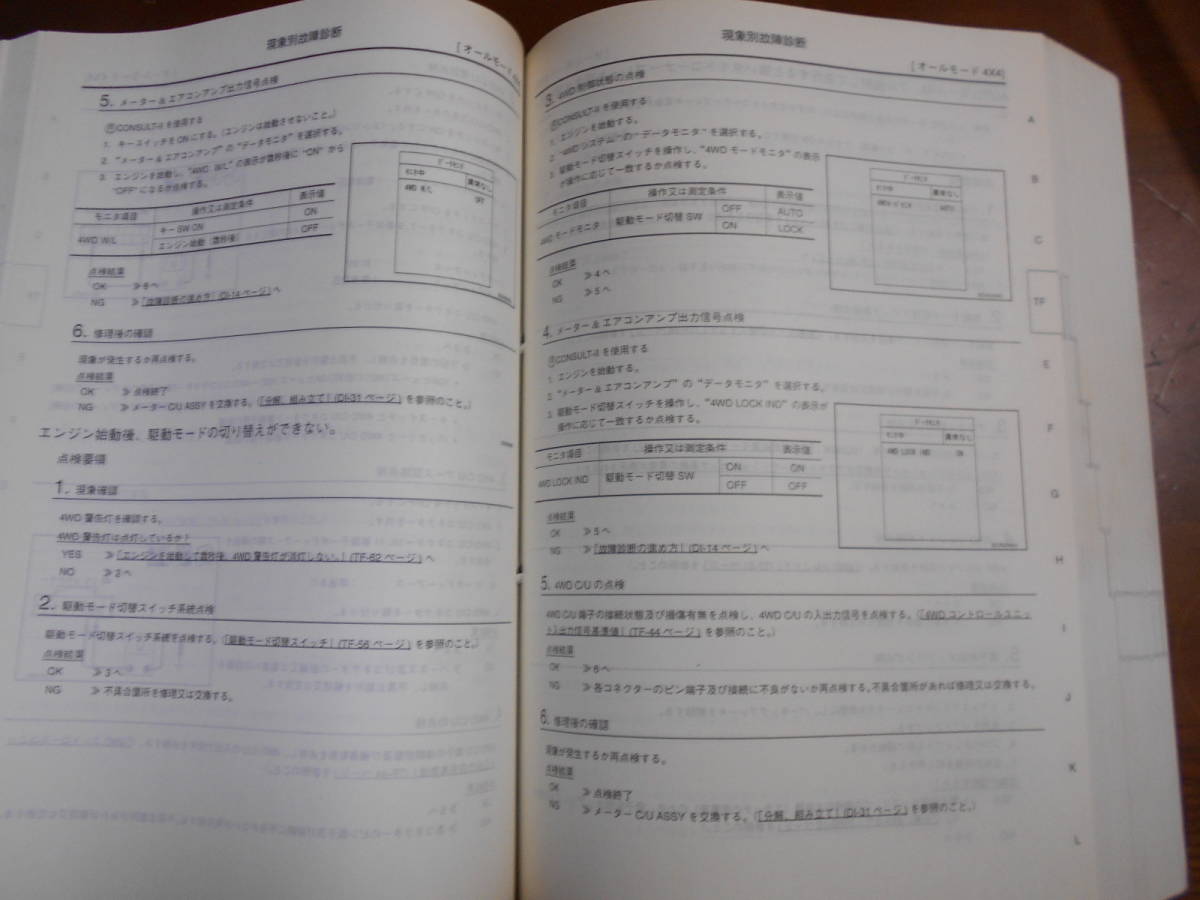 現象別故障診断
[オールモード 4X4]
5. メーター & エアコンアンプ出力信号点検
CONSULT-II を使用する
1. キースイッチをONにする。(エンジンは始動させないこと。)
2. "メーター & エアコンアンプ" の "データモニタ" を選択する。
3. エンジンを始動し、"4WD W/L" の表示が数秒後に "ON" から
"OFF" になるか点検する。
モニタ項目 操作又は測定条件 表示値
4WD W/L キー SW ON ON
エンジン始動 (数秒後) OFF
データモニタ
モニタ中 異常なし
4WD W/L OFF
点検結果
OK ≫ 6へ
NG ≫ 「故障診断の進め方」(DI-14 ページ) へ
6. 修理後の確認
現象が発生するか再点検する。
点検結果
OK ≫ 点検終了
NG ≫ メーター C/U ASSY を交換する。(「分解、組み立て」(DI-31 ページ) を参照のこと。)
エンジン始動後、駆動モードの切り替えができない。
点検要領
1. 現象確認
4WD 警告灯を確認する。
4WD 警告灯は点灯しているか?
YES ≫ 「エンジンを始動して数秒後、4WD 警告灯が消灯しない。」(TF-62 ページ) へ
NO ≫ 2へ
2. 駆動モード切替スイッチ系統点検
駆動モード切替スイッチ系統を点検する。(「駆動モード切替スイッチ」(TF-56 ページ) を参照のこと。)
点検結果
OK ≫ 3へ
NG ≫ 不具合箇所を修理又は交換する。
現象別故障診断
[オールモード 4X4]
3. 4WD 制御状態の点検
CONSULT-II を使用する
1. エンジンを始動する。
2. "4WDシステム" の "データモニタ" を選択する。
3. 駆動モード切替スイッチを操作し、"4WD モードモニタ" の表示
が操作に応じて一致するか点検する。
モニタ項目 操作又は測定条件 表示値
4WD モードモニタ 駆動モード切替 SW OFF AUTO
ON LOCK
データモニタ
モニタ中 異常なし
AUTO
点検結果
OK ≫ 4へ
NG ≫ 5へ
4. メーター & エアコンアンプ出力信号点検
CONSULT-II を使用する
1. エンジンを始動する。
2. "メーター & エアコンアンプ" の "データモニタ" を選択する。
3. 駆動モード切替スイッチを操作し、"4WD LOCK IND" の表示が
操作に応じて一致するか点検する。
モニタ項目 操作又は測定条件 表示値
4WD LOCK IND 駆動モード切替 SW ON ON
OFF OFF
データモニタ
モニタ中 異常なし
4WD LOCK IND ON
点検結果
OK ≫ 5へ
NG ≫ 「故障診断の進め方」(DI-14 ページ) へ
5. 4WD C/U の点検
4WD C/U 端子の接続状態及び損傷有無を点検し、4WD C/U の入出力信号を点検する。(「4WD コントロールユニッ
ト入出力信号基準値」(TF-44 ページ) を参照のこと。)
点検結果
OK ≫ 6へ
NG ≫ 各コネクターのピン端子及び接続に不良がないか再点検する。不具合箇所があれば修理又は交換する。
6. 修理後の確認
現象が発生するか再点検する。
点検結果
OK ≫ 点検終了
NG ≫ メーター C/U ASSY を交換する。(「分解、組み立て」(DI-31 ページ) を参照のこと。)
A
B
C
TF
E
F
G
H
I
J
K
L